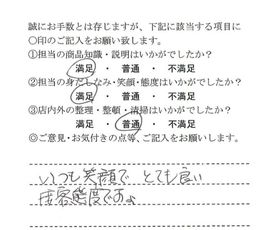 誠にお手数とは存じますが、下記に該当する項目に
○印のご記入をお願い致します。
①担当の商品知識・説明はいかがでしたか?
満足 ・ 普通 ・ 不満足
②担当の身だしなみ・笑顔・態度はいかがでしたか?
満足 ・ 普通 ・ 不満足
③店内外の整理・整頓・清掃はいかがでしたか?
満足 ・ 普通 ・ 不満足
◎ご意見・お気付きの点等、ご記入をお願いします。
いつも笑顔で とても良い
接客態度ですよ